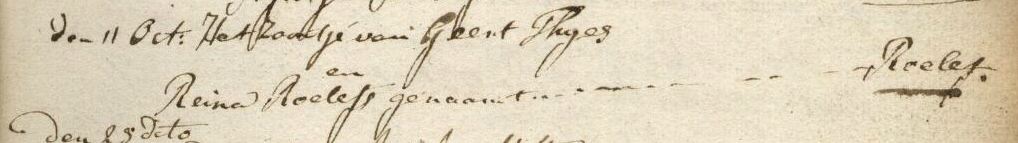 den 11 Oct: Het Zoontje van Geert Thyes
en
Reina Roelefs genaamt Roelef.
den 25 Dito